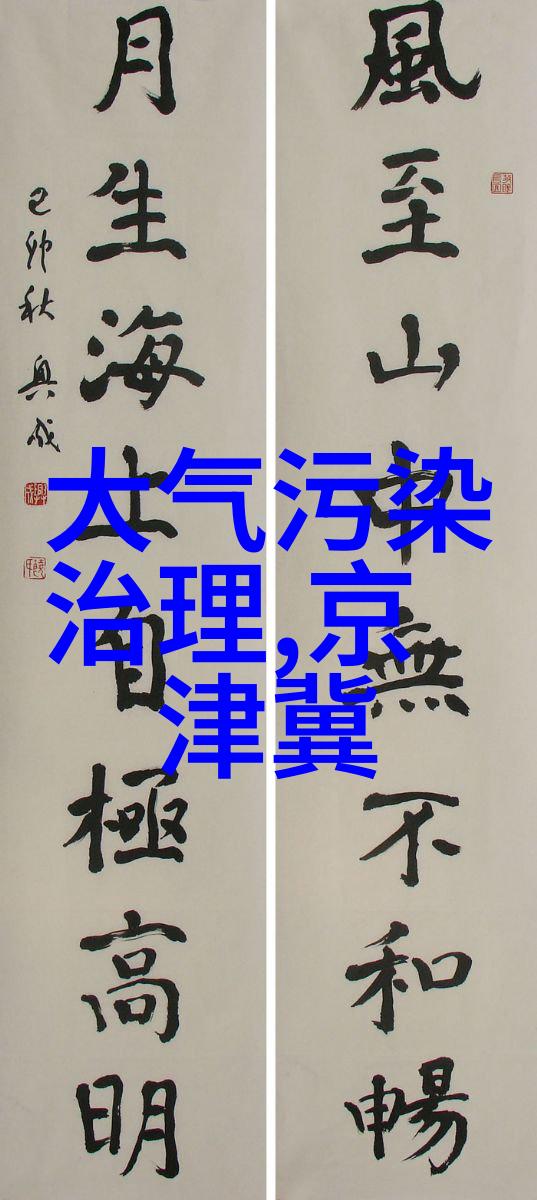 風至山中無不和暢
月生海上自極高明
己卯秋 興成
大气污染
治理,京
津冀